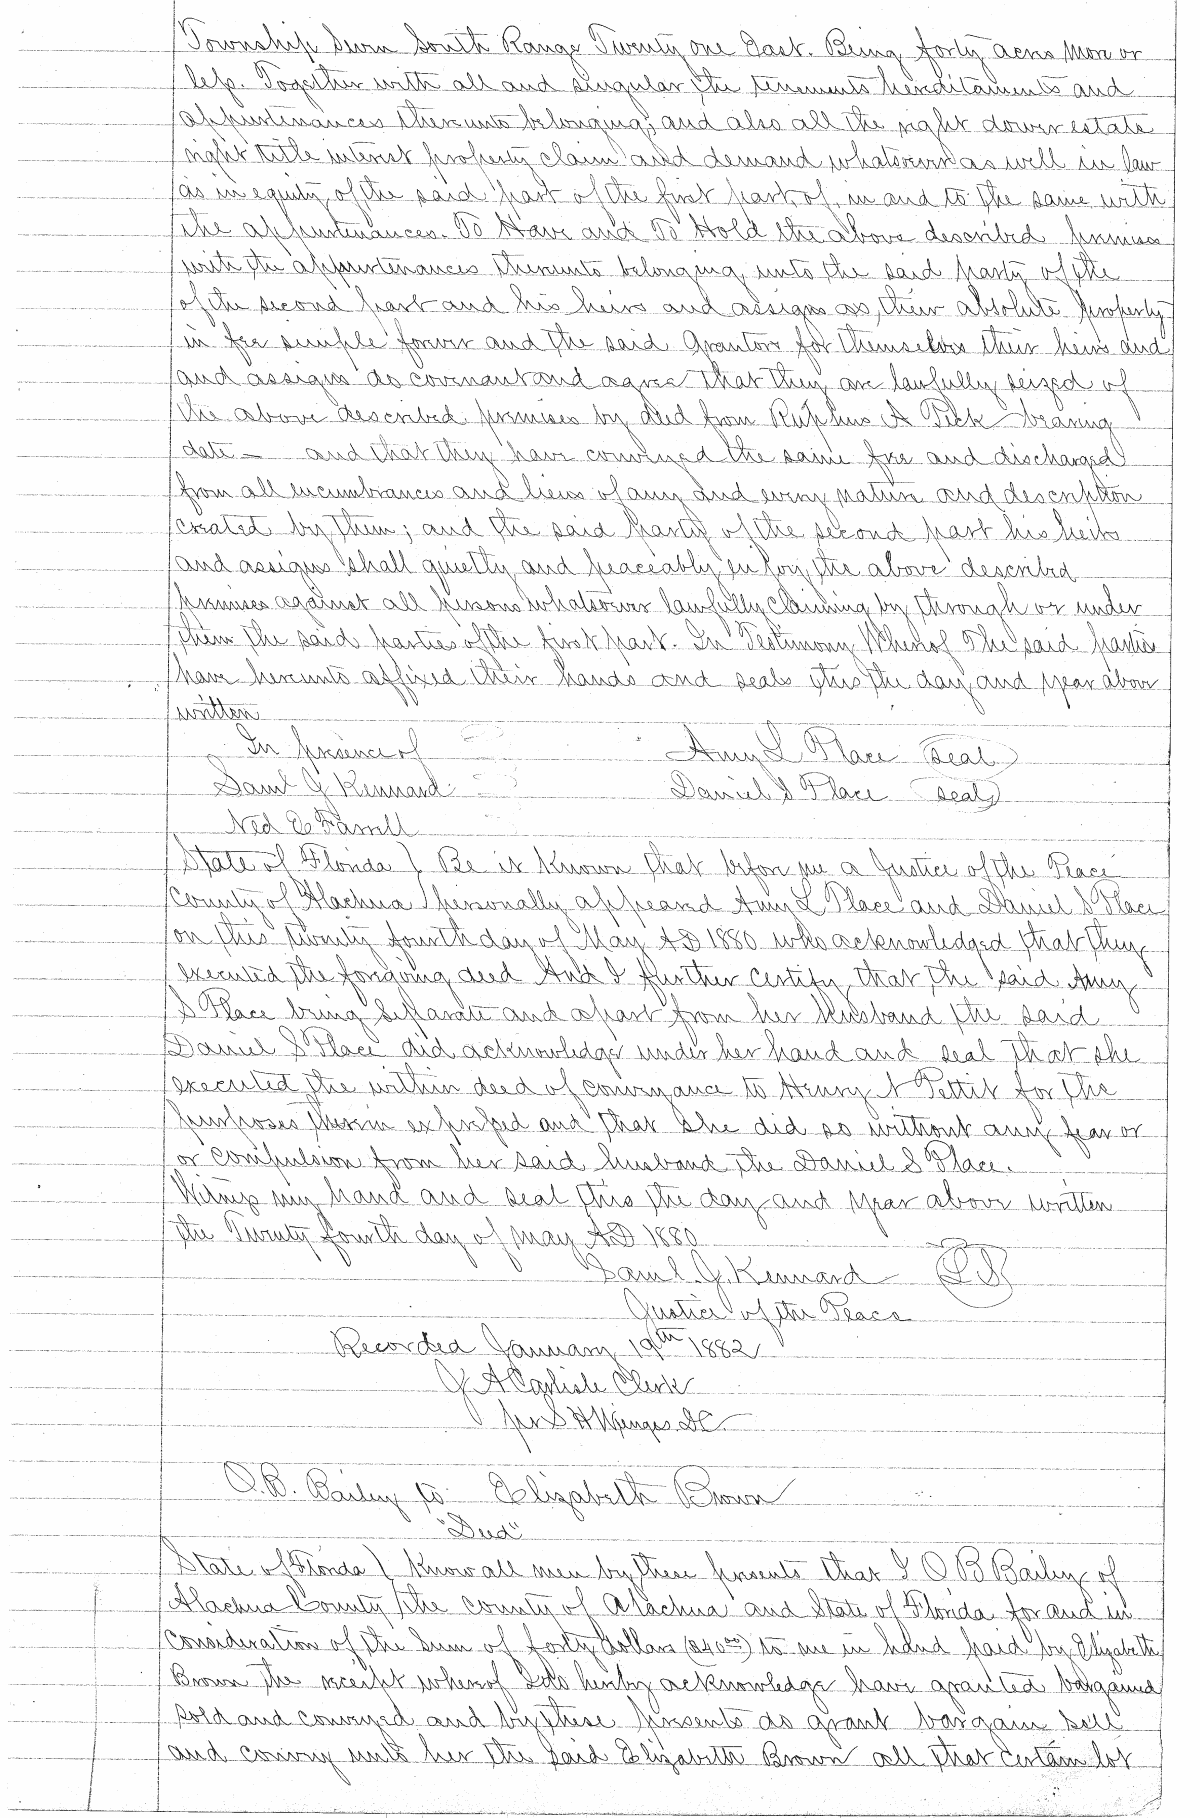 Township Seven South Range Twenty one East. Being forty acres More or
less. Together with all and singular the tenements hereditaments and
appurtenances thereunto belonging; and also all the right dower estate
right title interest property claim and demand whatsoever as well in law
as in equity of the said part of the first part, of, in and to the same with
the appurtenances. To Have and To Hold the above described premises
with the appurtenances thereunto belonging unto the said party of the
of the second part and his heirs and assigns as, their absolute property
in fee simple forever and the said Grantors for themselves their heirs and
and assigns do covenant and agree that they are lawfully seized of
the above described premises by deed from Ruphus A Peck bearing
date — and that they have conveyed the same free and discharged
from all encumbrances and liens of any and every nature and description
created by them; and the said party of the second part his heirs
and assigns shall quietly and peaceably enjoy the above described
premises against all persons whatsoever lawfully claiming by through or under
them the said parties of the first part. In Testimony Whereof The said parties
have hereunto affixed their hands and seals this the day and year above
written
In presence of Amy L Place (seal)
Saml G Kennard Daniel S Place (seal)
Ned E Farrell
State of Florida } Be it Known that before me a Justice of the Peace
County of Alachua } personally appeared Amy L Place and Daniel S Place
on this twenty fourth day of May AD 1880 who acknowledged that they
executed the foregoing deed And I further Certify that the said Amy
S Place being separate and apart from her Husband the said
Daniel S Place did acknowledge under her hand and seal that she
executed the within deed of conveyance to Henry A Pettit for the
purposes therein expressed and that she did so without any fear or
or compulsion from her said husband the Daniel S Place.
Witness my hand and seal this the day and year above written
the Twenty fourth day of May AD 1880
Saml. G. Kennard (LS)
Justice of the Peace
Recorded January 19th 1882
J A Carlisle Clerk
per S H Wienges DC
O. B. Bailey to Elizabeth Brown
"Deed"
State of Florida } Know all men by these presents that I O B Bailey of
Alachua County } the county of Alachua and State of Florida for and in
consideration of the sum of forty dollars ($40 00) to me in hand paid by Elizabeth
Brown the receipt whereof I do hereby acknowledge have granted bargained
sold and conveyed and by these presents do grant bargain sell
and convey unto her the said Elizabeth Brown all that certain lot